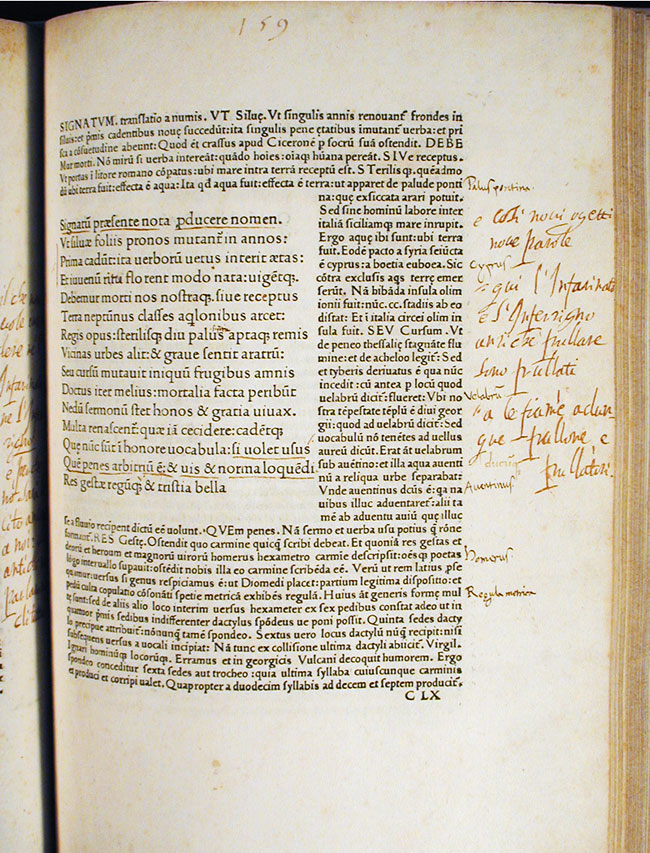 159
SIGNATVM. translatio a numis. VT Siluę. Vt singulis annis renouant᷑ frondes in
siluis: et p̄mis cadentibus nouę succedūt: ita singulis pene ętatibus imutant᷑ uerba: et pri
sca a cōsuetudine abeunt: Quod ēt crassus apud Ciceronē p socrū suā ostendit. DEBE
Mur morti. Nō mirū si uerba intereāt: quādo hoies: oiaq; hūana pereāt. SIVe receptus.
Vt portus ī litore romano cōpatus: ubi mare intra terrā receptū est. STerilisq;. quēadmo
dū ubi terra fuit: effecta ē aqua: Ita qd aqua fuit: effectā ē terra: ut apparet de palude ponti
na: quę exsiccata arari potuit.
Sed sine hominū labore inter
italiā siciliamq; mare inrupit.
Ergo aquę ibi sunt: ubi terra
fuit. Eodē pacto a syria seiūcta
ē cyprus: a boetia euboea. Sic
cōtra exclusis aqs terrę emer
serūt. Nā bibāda insula olim
ionii fuit: nūc. cc. stadiis ab eo
distat: Et ī italia circei olim in
sula fuit. SEV Cursum. Vt
de peneo thessalię stagnāte flu
mine: et de acheloo legit᷑: Sed
et tyberis deriuatus ē qua nūc
incedit: cū antea p locū quod
uelabrū dicit᷑ flueret: Vbi no
stra tēpestate tēplū ē diui geor
gii: quod ad uelabrū dicit᷑: Sed
uocabulū nō tenētes ad uellus
aureū dicūt. Erat āt uelabrum
sub auētino: et illa aqua auenti
nū a reliqua urbe separabat:
Vnde auentinus dcūs ē: qa na
uibus illuc aduentaret᷑: alii ta
mē ab aduentu auiū quę illuc
Signatū præsente nota pducere nomen.
Vt siluæ foliis pronos mutant᷑ in annos:
Prima cadūt: ita uerborū uetus interit ætas:
Et iuuenū ritu florent modo nata: uigētq;.
Debemur morti nos nostraq;. siue receptus
Terra neptūnus classes aqlonibus arcet:
Regis opus: sterilisq; diu palus aptaq; remis
Vicinas urbes alit: & graue sentit aratrū:
Seu cursū mutauit iniquū frugibus amnis
Doctus iter melius: mortalia facta peribūt
Nedū sermonū stet honos & gratia uiuax.
Multa renascent᷑: quæ iā cecidere: cadētq;
Quę nūc sūt ī honore uocabula: si uolet usus
Quē penes arbitriū ē: & uis & norma loquēdi
Res gestæ regūq; & tristia bella
se a fluuio recipent dictū eē uolunt. QVEm penes. Nā sermo et uerba usu potius q̄ rōne
formant᷑. RES Gestę. Ostendit quo carmine quicq; scribi debeat. Et quoniā res gestas et
deorū et heroum et magnorū uirorū homerus hexametro carmie descripsit: oēsq; poetas
lōgo interuallo supauit: ostēdit nobis illa eo carmine scribēda eē. Verū ut rem latius pse
quamur: uersus si genus respiciamus ē: ut Diomedi placet: partium legitima dispositio: et
pedū culta copulatio cōsonāti spetie metricā exhibēs regulā. Huius āt generis formę mul
tę sunt: sed de aliis alio loco interim uersus hexameter ex sex pedibus constat adeo ut in
quattuor p̄mis sedibus indifferenter dactylus spōdeus ue poni possit. Quinta sedes dacty
lo precipue attribuit᷑: nōnunq̄ tamē spondeo. Sextus uero locus dactylū nūq̄ recipit: nisi
subsequens uersus a uocali incipiat: Nā tunc ex collisione ultima dactyli abiicit᷑. Virgil.
Ignari hominūq; locorūq;. Erramus et in georgicis Vulcani decoquit humorem. Ergo
spondeo conceditur sexta sedes aut trocheo: quia ultima syllaba cuiuscunque carminis
et produci et corripi ualet. Quapropter a duodecim syllabis ad decem et septem producit᷑.
CLX
Palus pontina.
e cosi novi ogetti
nove parole
Cyprus
qui l'Infarinato
e l'Inferrigno
anzi che frullare
sono frullati
Velabrū
frullone e
frullatori
Aventinus
Homerus
Regula metrica